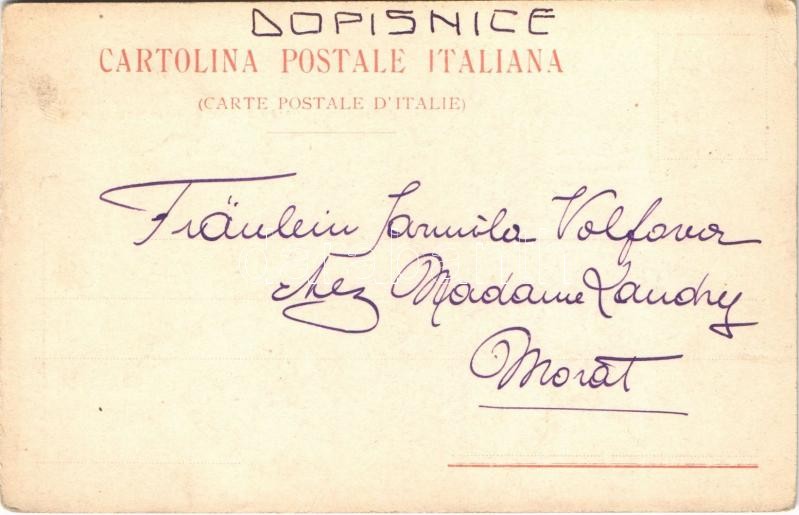 DOPISNICE
CARTOLINA POSTALE ITALIANA
(CARTE POSTALE D'ITALIE)
Fräulein Jarmila Volfova
chez Madame Landry
Morat